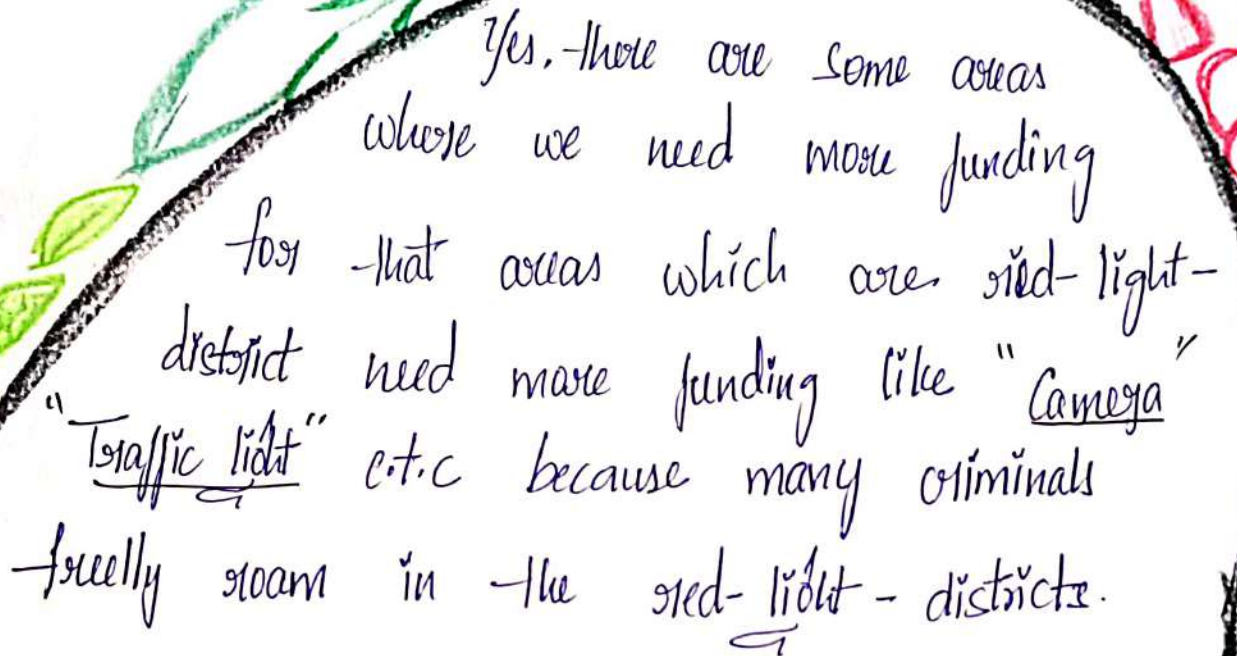 Yes. there are some areas
where we need more funding
for that areas which are red-light-
district need more funding like "Camera"
"Traffic light" e.t.c because many criminals
freelly roam in the red-light-districts.